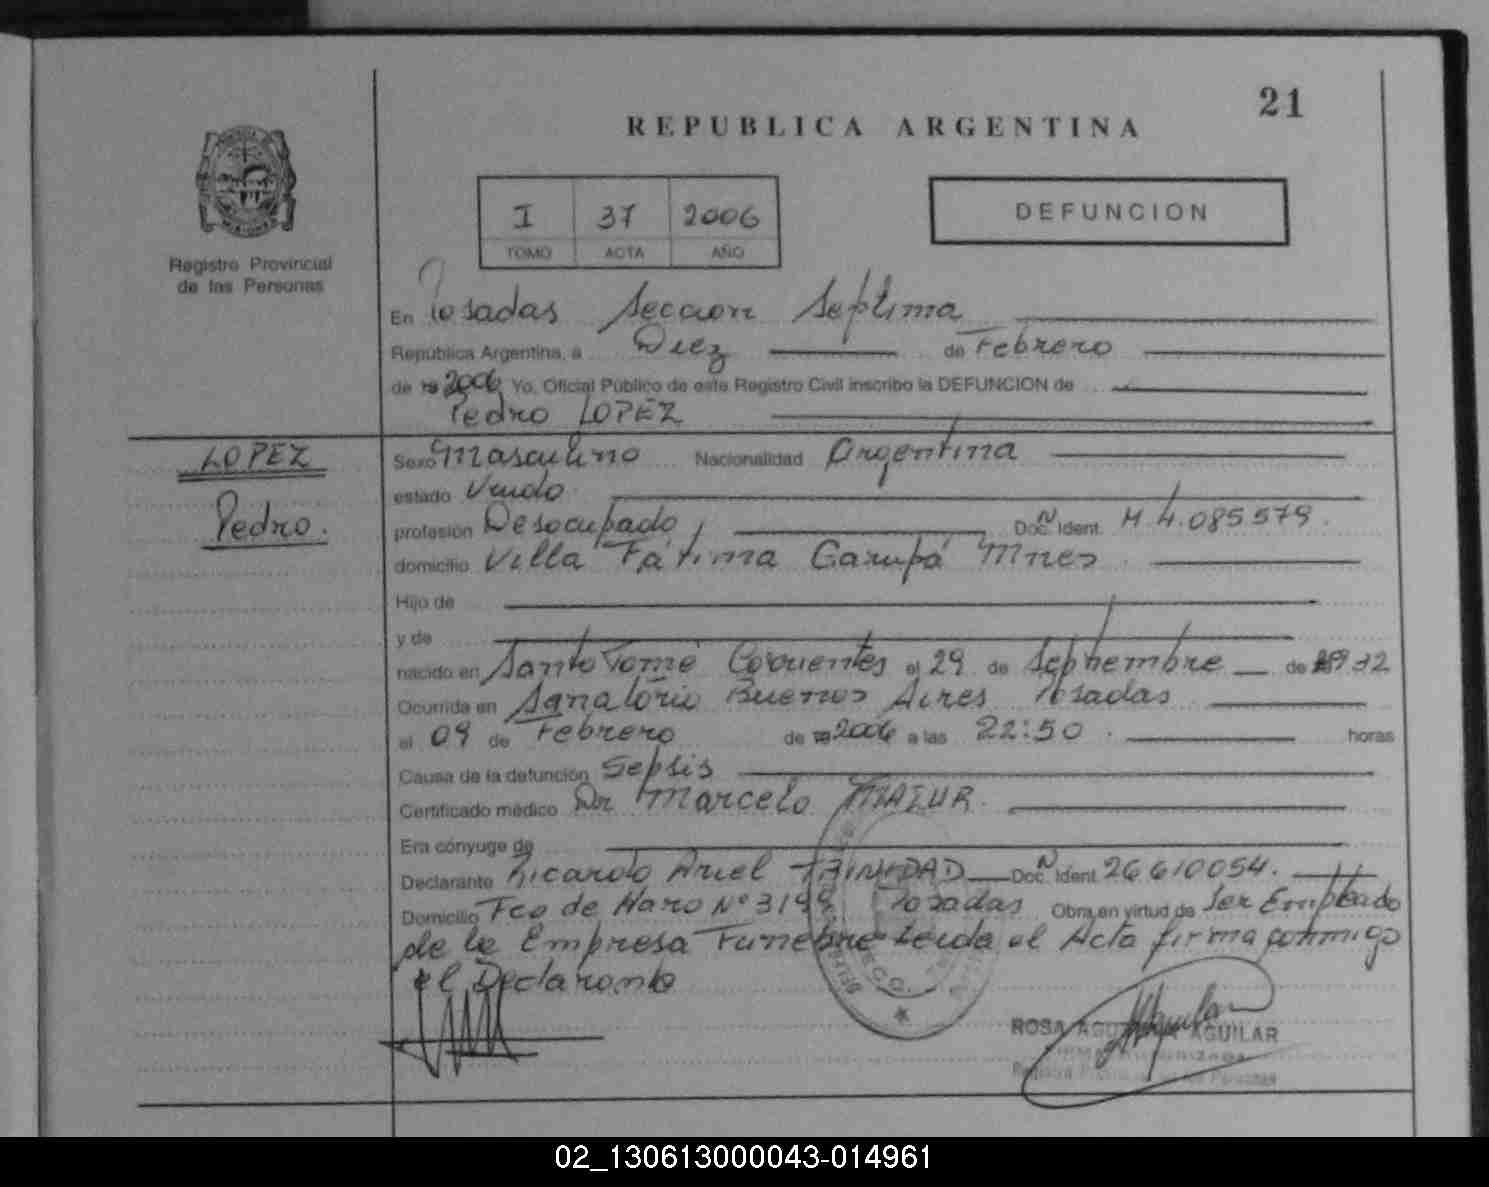 21
REPUBLICA ARGENTINA
I 37 2006
TOMO ACTA AÑO
DEFUNCION
Registro Provincial
de las Personas
En Posadas Sección Septima
República Argentina, a Diez de Febrero
de 19 2006 Yo, Oficial Público de este Registro Civil inscribo la DEFUNCION de
Pedro LOPEZ
LOPEZ
Pedro.
Sexo Masculino Nacionalidad Argentina
estado Viudo
profesión Desocupado Doc. N Ident. M 4.085.579.
domicilio Villa Fátima Garupá Mnes
Hijo de
y de
nacido en Santo Tomé Corrientes el 29 de Septiembre de 1932
Ocurrida en Sanatorio Buenos Aires Posadas
el 09 de Febrero de 19 2006 a las 22:50. horas
Causa de la defunción Sepsis
Certificado médico Dr Marcelo
Era cónyuge de
Declarante Ricardo Ariel TRINIDAD Doc. N Ident. 26610054.
Domicilio Fco de Haro N° 3199 Posadas Obra en virtud de Ser Empleado
de la Empresa Funebre Leida el Acta firma conmigo
el Declarante
ROSA AGUILAR
Registro Provincial de las Personas
02_130613000043-014961